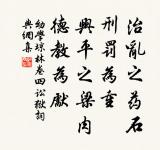 治亂之药石
刑罰為重
興平之梁肉
德教為獻
幼學琼林卷四訟獄詞
典網集